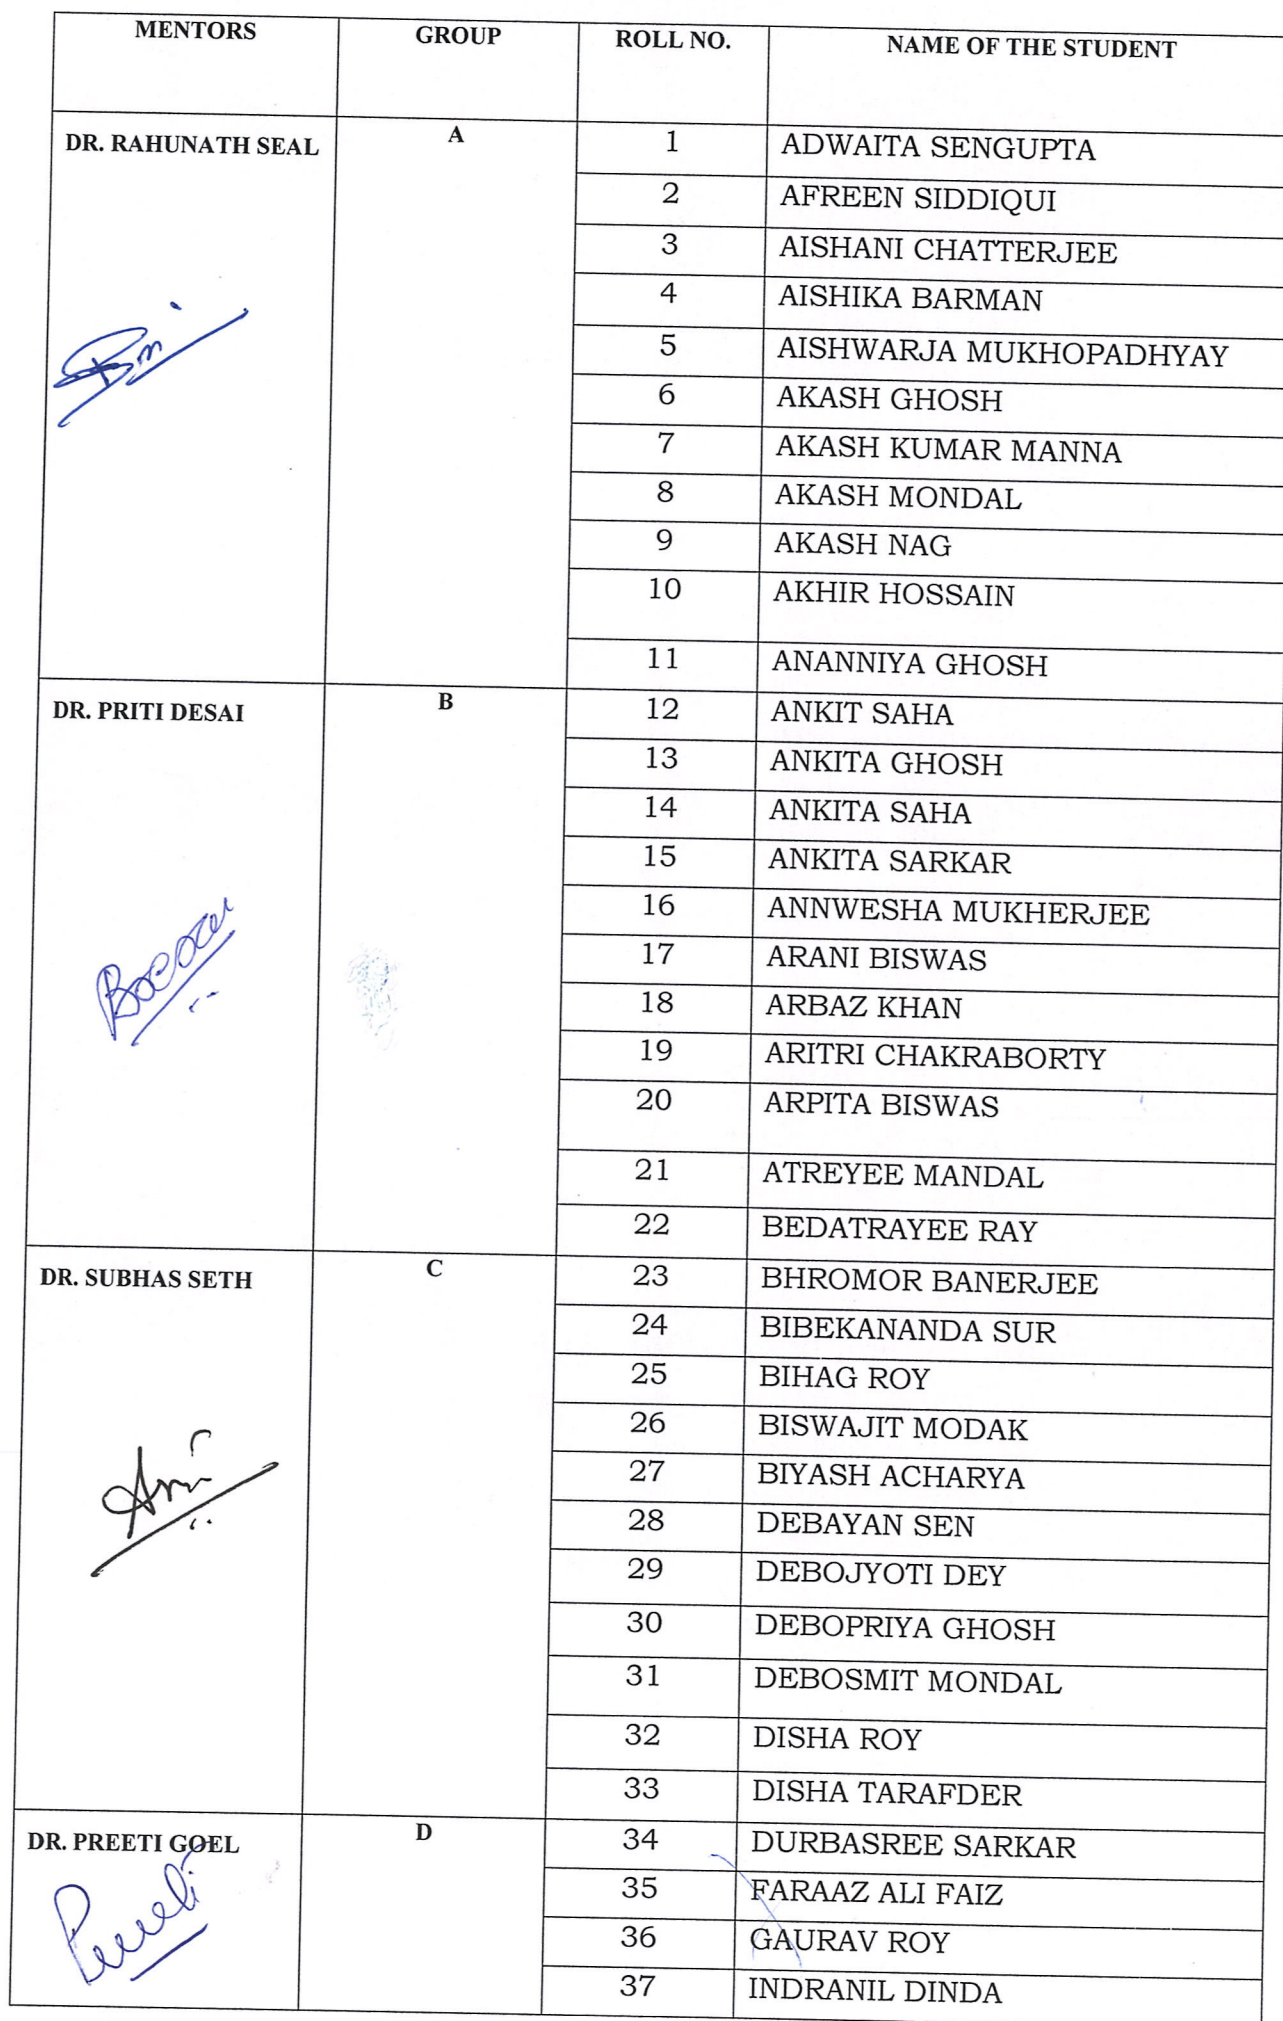 MENTORS GROUP ROLL NO. NAME OF THE STUDENT
DR. RAHUNATH SEAL A 1 ADWAITA SENGUPTA
2 AFREEN SIDDIQUI
3 AISHANI CHATTERJEE
4 AISHIKA BARMAN
5 AISHWARJA MUKHOPADHYAY
6 AKASH GHOSH
7 AKASH KUMAR MANNA
8 AKASH MONDAL
9 AKASH NAG
10 AKHIR HOSSAIN
11 ANANNIYA GHOSH
DR. PRITI DESAI B 12 ANKIT SAHA
13 ANKITA GHOSH
14 ANKITA SAHA
15 ANKITA SARKAR
16 ANNWESHA MUKHERJEE
17 ARANI BISWAS
18 ARBAZ KHAN
19 ARITRI CHAKRABORTY
20 ARPITA BISWAS
21 ATREYEE MANDAL
22 BEDATRAYEE RAY
DR. SUBHAS SETH C 23 BHROMOR BANERJEE
24 BIBEKANANDA SUR
25 BIHAG ROY
26 BISWAJIT MODAK
27 BIYASH ACHARYA
28 DEBAYAN SEN
29 DEBOJYOTI DEY
30 DEBOPRIYA GHOSH
31 DEBOSMIT MONDAL
32 DISHA ROY
33 DISHA TARAFDER
DR. PREETI GOEL D 34 DURBASREE SARKAR
35 FARAAZ ALI FAIZ
36 GAURAV ROY
37 INDRANIL DINDA